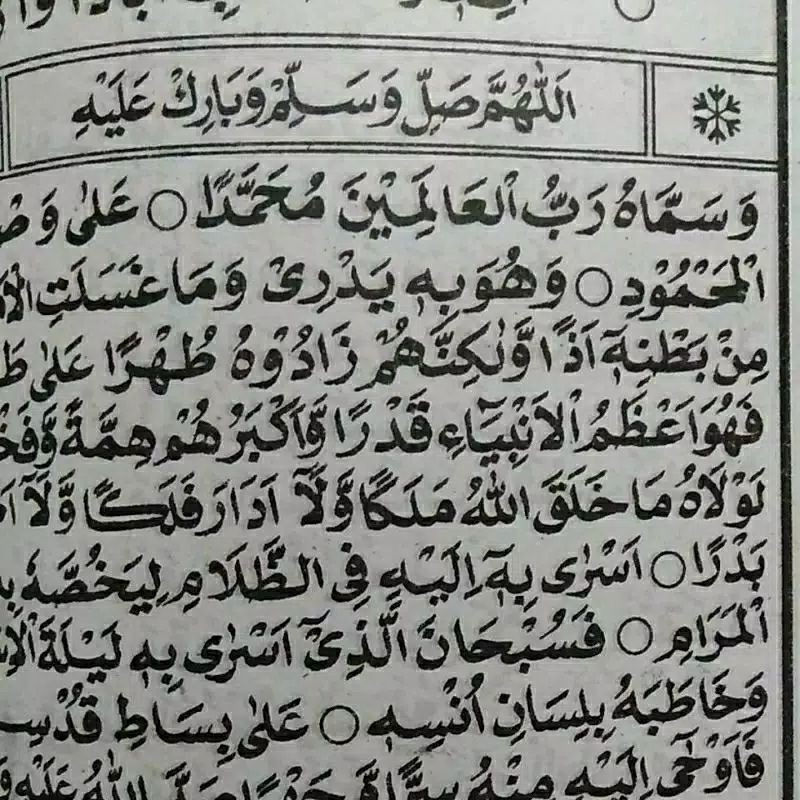 اَللّٰهُمَّ صَلِّ وَسَلِّمْ وَبَارِكْ عَلَيْهِ
وَسَمَّاهُ رَبُّ الْعَالَمِيْنَ مُحَمَّدًا ○ عَلٰى
الْمَحْمُوْدِ ○ وَهُوَ بِهٖ يَدْرِىْ وَمَا غَسَلَتِ
مِنْ بَطْنِهٖٓ اَذًا وَّلٰكِنَّهُمْ زَادُوْهُ طُهْرًا عَلٰى
فَهُوَ اَعْظَمُ الْاَنْبِيَآءِ قَدْرًا وَّاَكْبَرُهُمْ هِمَّةً
لَوْلَاهُ مَا خَلَقَ اللّٰهُ مَلَكًا وَّلَآ اَدَارَ فَلَكًا وَّلَآ
بَدْرًا ○ اَسْرٰى بِهٖٓ اِلَيْهِ فِى الظَّلَامِ لِيَخُصَّهٗ
الْمَرَامِ ○ فَسُبْحَانَ الَّذِىْٓ اَسْرٰى بِهٖ لَيْلَةَ
وَخَاطَبَهٗ بِلِسَانِ اُنْسِهٖ ○ عَلٰى بِسَاطِ
فَاَوْحٰٓى اِلَيْهِ مِنْهُ سِرًّا